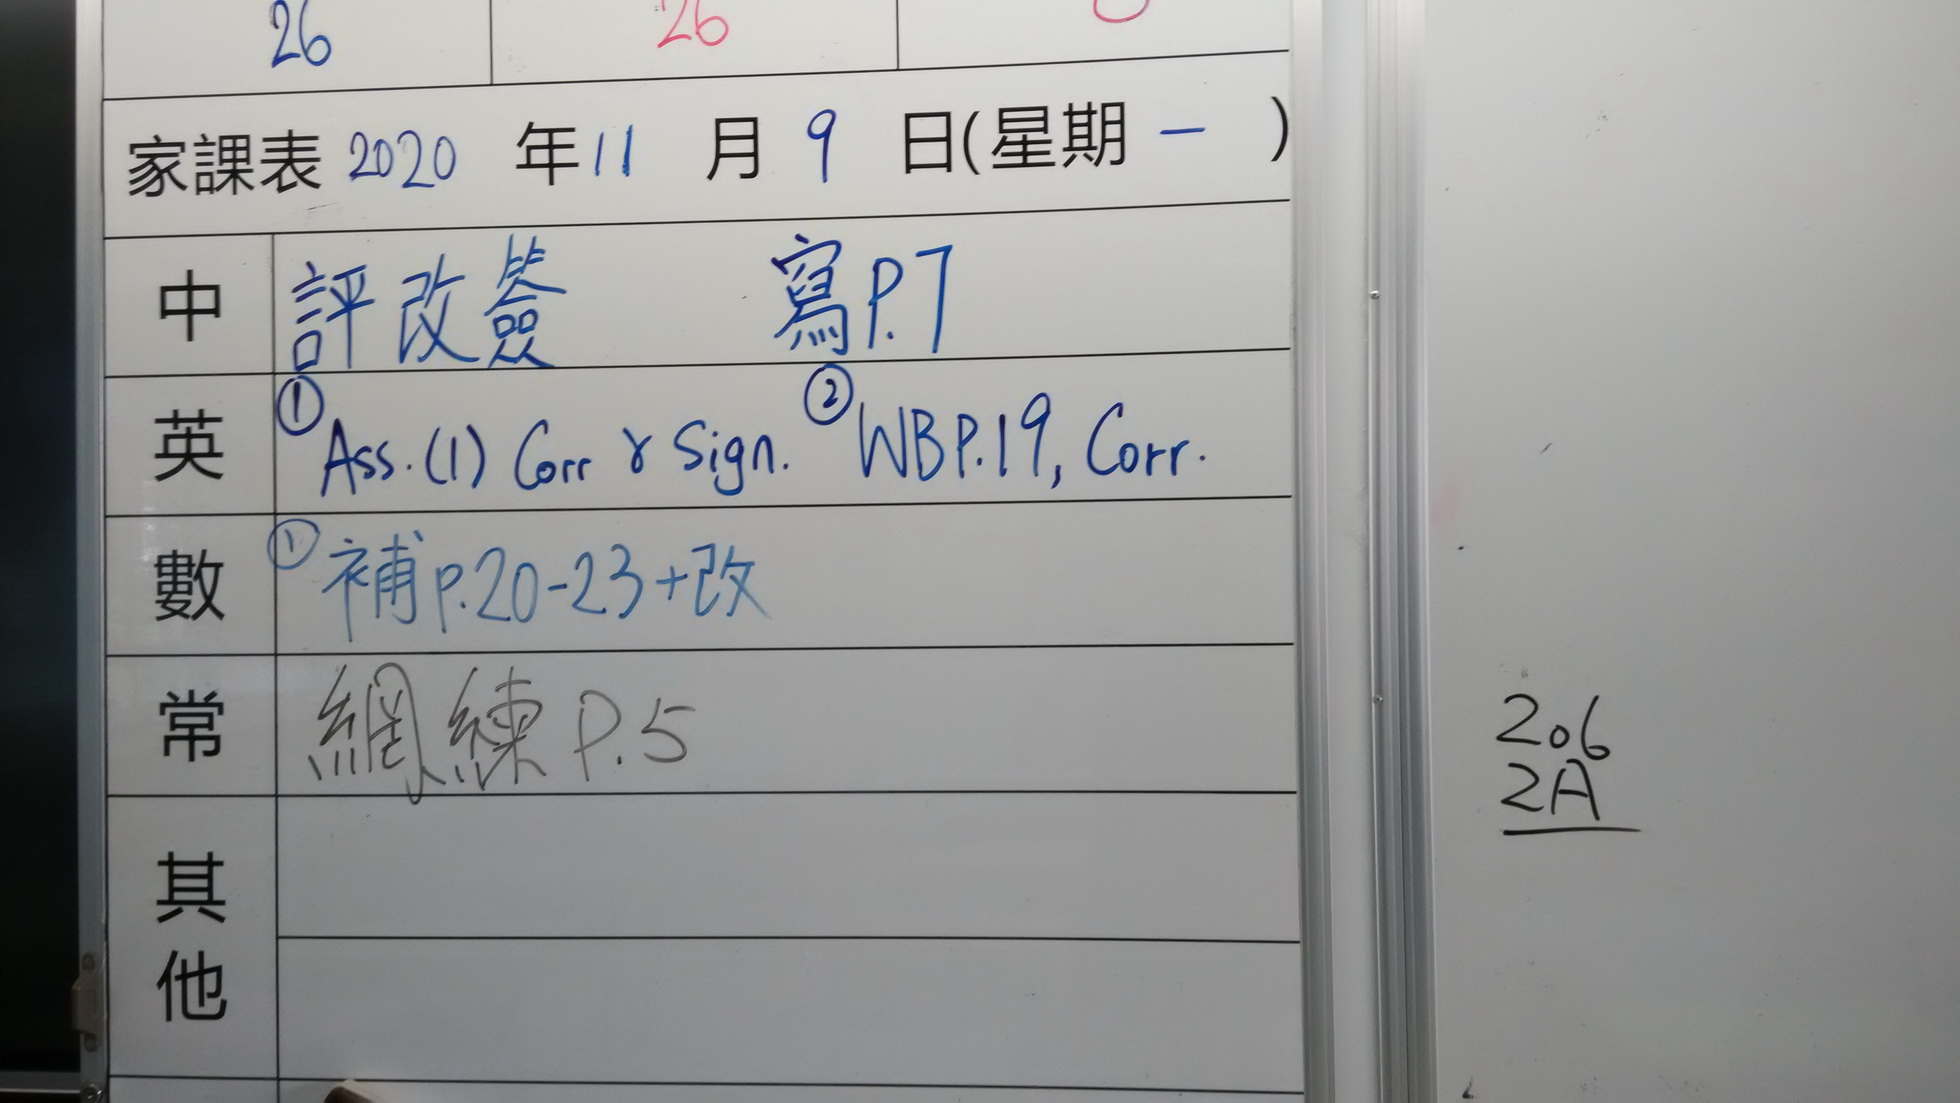 26 26
家課表 2020 年 11 月 9 日(星期 一 )
中 評改簽 寫P.7
英 ① Ass.(1) Corr & Sign. ② WB P.19, Corr.
數 ① 補 p.20-23+改
常 網練 P.5
其他
206
2A